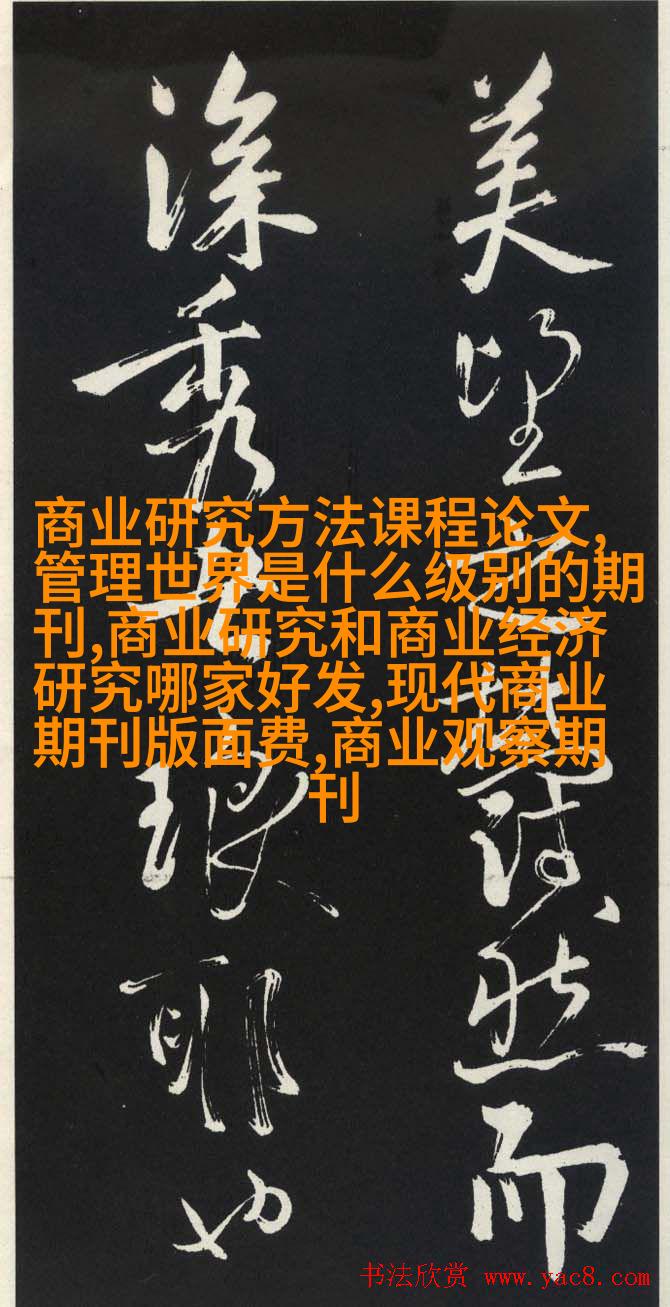 美望之蔚然而
深秀者琅耶也
商业研究方法课程论文,
管理世界是什么级别的期
刊,商业研究和商业经济
研究哪家好发,现代商业
期刊版面费,商业观察期
刊
书法欣赏 www.yac8.com